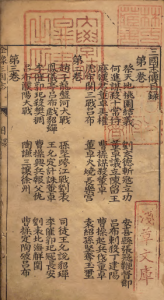 三國志傳目錄
第一卷
祭天地桃園結義 劉玄德斬寇立功
安喜縣張飛鞭督郵
何進謀殺十常侍 董卓議立陳留王
呂布刺殺丁建陽
廢漢君董卓弄權 曹操謀殺董卓
曹操起兵伐董卓
虎牢關三戰呂布 董卓火燒長樂宮
袁紹孫堅奪玉璽
第二卷
趙子龍盤河大戰 孫堅跨江戰劉表
司徒王允說貂蟬
鳳儀亭呂布戲貂蟬 王允定計誅董卓
李傕郭汜寇長安
李傕郭汜殺樊稠 曹操興兵報父仇
劉玄德北海解圍
呂布濮陽大戰 陶謙三讓徐州
曹操定陶破呂布
淺草文庫